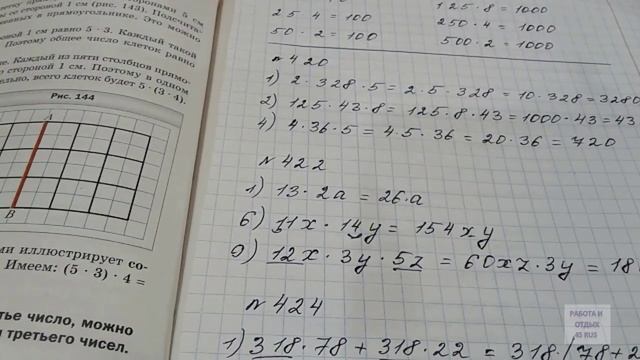 сторонами 5 см
со стороной 1 см (рис. 143). Подсчита-
в прямоугольнике. Это можно
1 см равно 5 · 3. Каждый такой
Поэтому общее число клеток равно
Каждый из пяти столбцов прямо-
стороной 1 см. Поэтому в одном
всего клеток будет 5 · (3 · 4).
Рис. 144
A
B
ми иллюстрирует со-
Имеем: (5 · 3) · 4 =
тье число, можно
и третьего чисел.
25 · 4 = 100
50 · 2 = 100
125 · 8 = 1000
250 · 4 = 1000
500 · 2 = 1000
№ 420
1) 2 · 328 · 5 = 2 · 5 · 328 = 10 · 328 = 3280
2) 125 · 43 · 8 = 125 · 8 · 43 = 1000 · 43 = 43
4) 4 · 36 · 5 = 4 · 5 · 36 = 20 · 36 = 720
№ 422
1) 13 · 2a = 26 · a
6) 11x · 14y = 154xy
9) 12x · 3y · 5z = 60xz · 3y = 18
№ 424
1) 318 · 78 + 318 · 22 = 318 · (78 + 2
РАБОТА И
ОТДЫХ
45 RUS